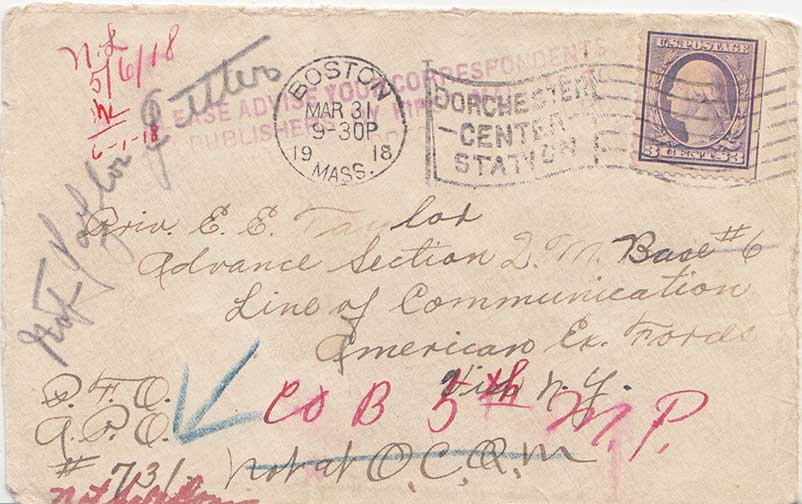 N.L
5/6/18
6-1-18
Not Taylor Letters
PLEASE ADVISE YOUR CORRESPONDENTS
PUBLISHERS
BOSTON
MAR 31
9-30P
19 18
MASS.
DORCHESTER
CENTER
STATION
U.S. POSTAGE
3 CENTS 3
Priv. E. E. Taylor
Advance Section Q. M. Base #6
Line of Communication
American Ex. Forces
Via N.Y.
Co B 5th M.P.
A.P.O.
# 731
Not at O.C.Q.M